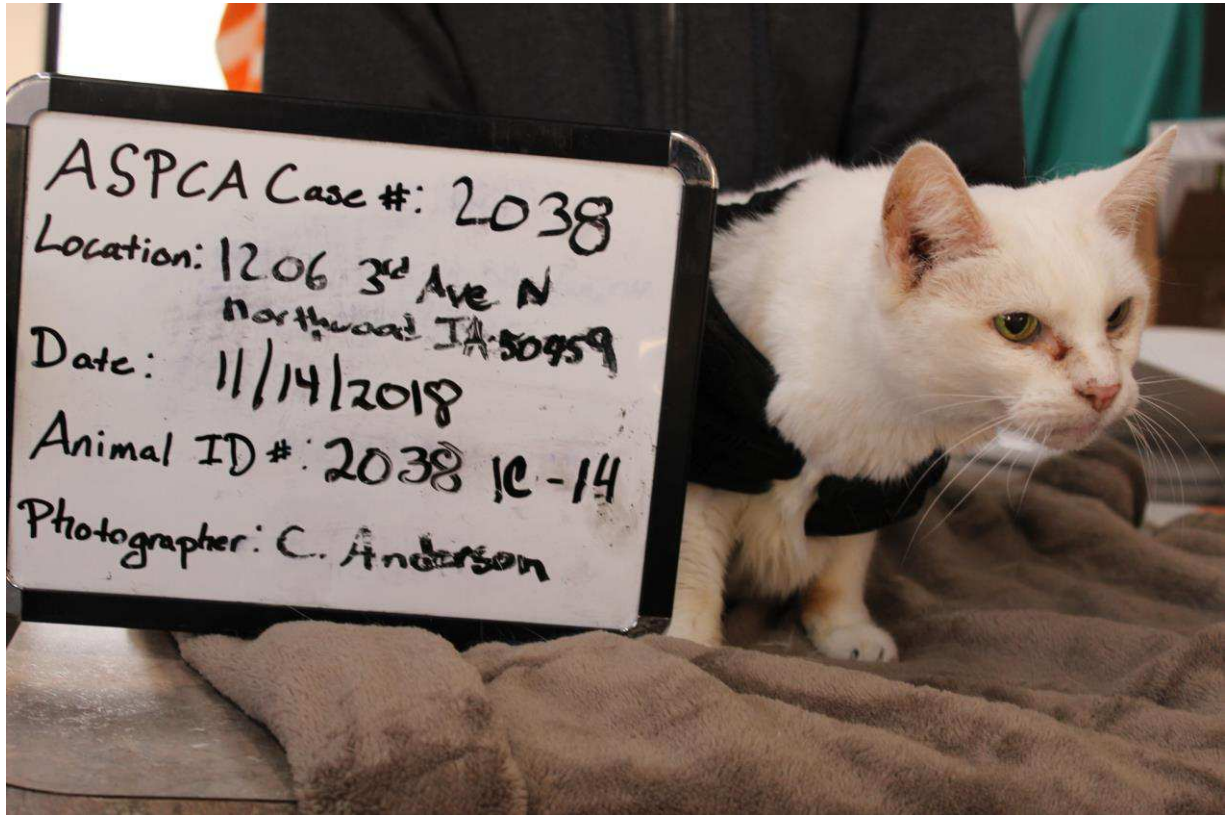 ASPCA Case #: 2038
Location: 1206 3rd Ave N
Northwood IA 50459
Date: 11/14/2018
Animal ID #: 2038 1C-14
Photographer: C. Anderson